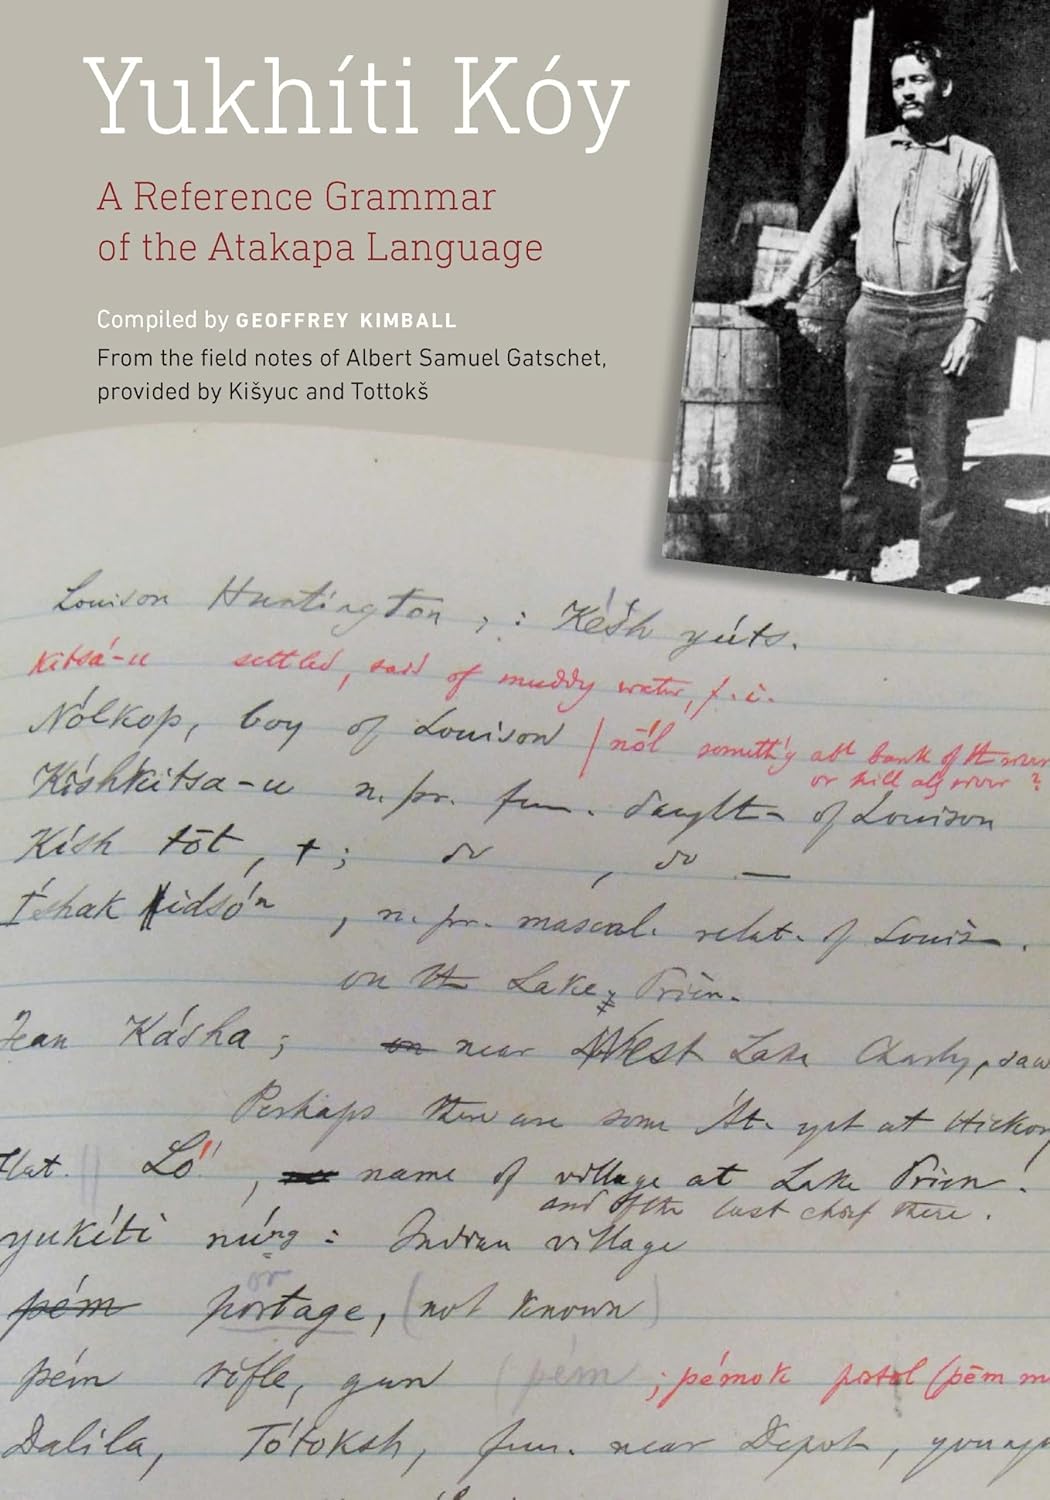 Yukhíti Kóy
A Reference Grammar
of the Atakapa Language
Compiled by GEOFFREY KIMBALL
From the field notes of Albert Samuel Gatschet,
provided by Kišyuc and Tottokš
Louison Huntington ; : Késh yúts.
Kitsá-u settled, said of muddy water, f. i.
Nólkop, boy of Louison / nōl someth'g abt bank of tt river
or hill alg river ?
Kishkitsa-u n. pr. fem. daught- of Louison
Kish tōt, †; do, do —
Íshak , n. pr. mascul. relat. of Louis-.
on tt Lake Prien.
Jean Kásha ; on near West Lake Charly, saw
Perhaps there are some At. yet at Hickory
Flat. Ló , name of village at Lake Prien!
and of the last chief there.
yukíti núng : Indian village
or
pém portage, (not known)
pém rifle, gun (pém ; pémok pistol (pēm m
Dalila, Tótoksh, fem. near Depot, younge